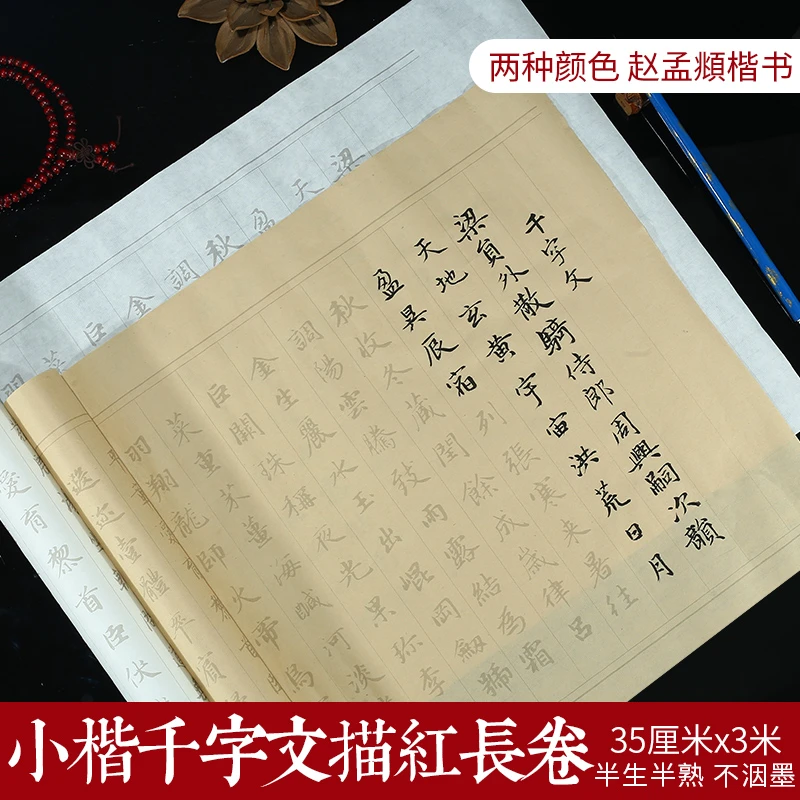 两种颜色 赵孟頫楷书
千字文
梁員外散騎侍郎周興嗣次韻
天地玄黃宇宙洪荒日月
盈昃辰宿列張寒来暑往
秋收冬藏閏餘成歲律呂
調陽雲騰致雨露結為霜
金生麗水玉出崐岡劒號
巨闕珠稱夜光果珍李
菜重芥薑海鹹河淡
羽翔龍師火帝鳥
遐迩壹體率賓
愛育黎首臣伏
梁
天
盈
秋
調
金
巨
菜
羽
小楷千字文描紅長卷
35厘米x3米
半生半熟 不洇墨